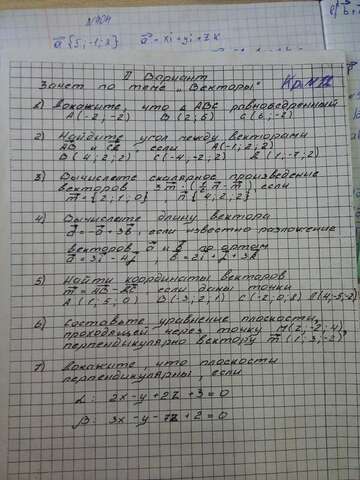 N404
a {5; -1; 2} a = xi + yj + zk
II Вариант
Зачет по теме „Векторы"
1) Докажите, что Δ ABC равнобедренный
A(-2; -2) B(2; 6) C(6; -2)
2) Найдите угол между векторами
AB и CD, если A(-1; 2; 2)
B(4; 2; 2) C(-4; -2; 2) D(1; -7; 2)
3) Вычислете скалярное произведение
векторов 3m · (½n - m), если
m = {2; 1; 0} n {4; 2; 2}
4) Вычислете длину вектора
d = -a + 3b, если известно разложение
векторов a и b по ортам
a = 3i - 4j, b = 2i + j + 3k
5) Найти координаты векторов
m = AB - DC если даны точки
A(1; 5; 0) B(-3; 2; 1) C(-2; 0; 8) D(4; -5; -2)
6) Составьте уравнение плоскости,
проходящей через точку M(2; -2; 4)
перпендикулярно вектору m(1; 3; -2)
7) Докажите, что плоскости
перпендикулярны, если
α: 2x - y + 2z + 3 = 0
β: 3x - y - 7z + 2 = 0